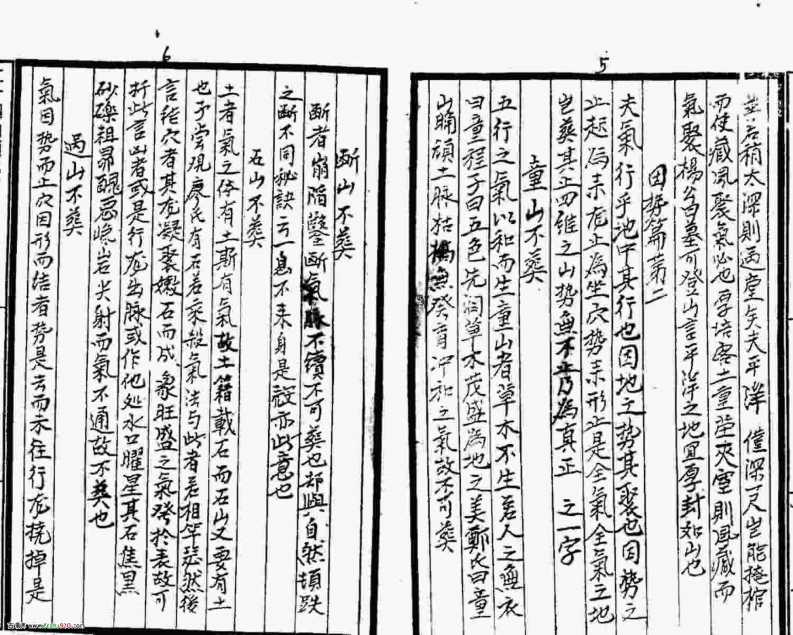 5
葬若稍太深則過堂矣夫平洋僅深一尺豈能掩棺
而使藏風聚氣必也厚培客土童茔夾室則風藏而
氣聚楊公曰墓可登山言平洋之地宜厚封如山也
因勢篇第二
夫氣行乎地中其行也因地之勢其聚也因勢之
止起為來龙止為坐穴勢來形止是全氣全氣之地
豈葬其止四維之山勢無不止乃為真止 之一字
童山不葬
五行之氣以和而生童山者草木不生若人之無衣
曰童程子曰五色光润草木茂盛為地之美鄭氏曰童
山確頑土脉枯槁無發育沖和之氣故不可葬
6
断山不葬
断者崩陷鑿断氣脉不續不可葬也却與自然頓跌
之断不同秘訣云一息不来身是殼亦此意也
石山不葬
土者氣之体有土斯有氣故土籍載石而石山又要有土
也予嘗观廖氏有石若乘殺氣法与此者若相牟盾然後
言徃穴者其龙凝聚嫩石而成象旺盛之氣發於表故可
折此言山者或是行龙出脉或作他処水口曜星其石焦黑
砂礫粗昴醜惡巉岩尖射而氣不通故不葬也
過山不葬
氣因势而止穴因形而结者势是去而未住行龙桡掉是